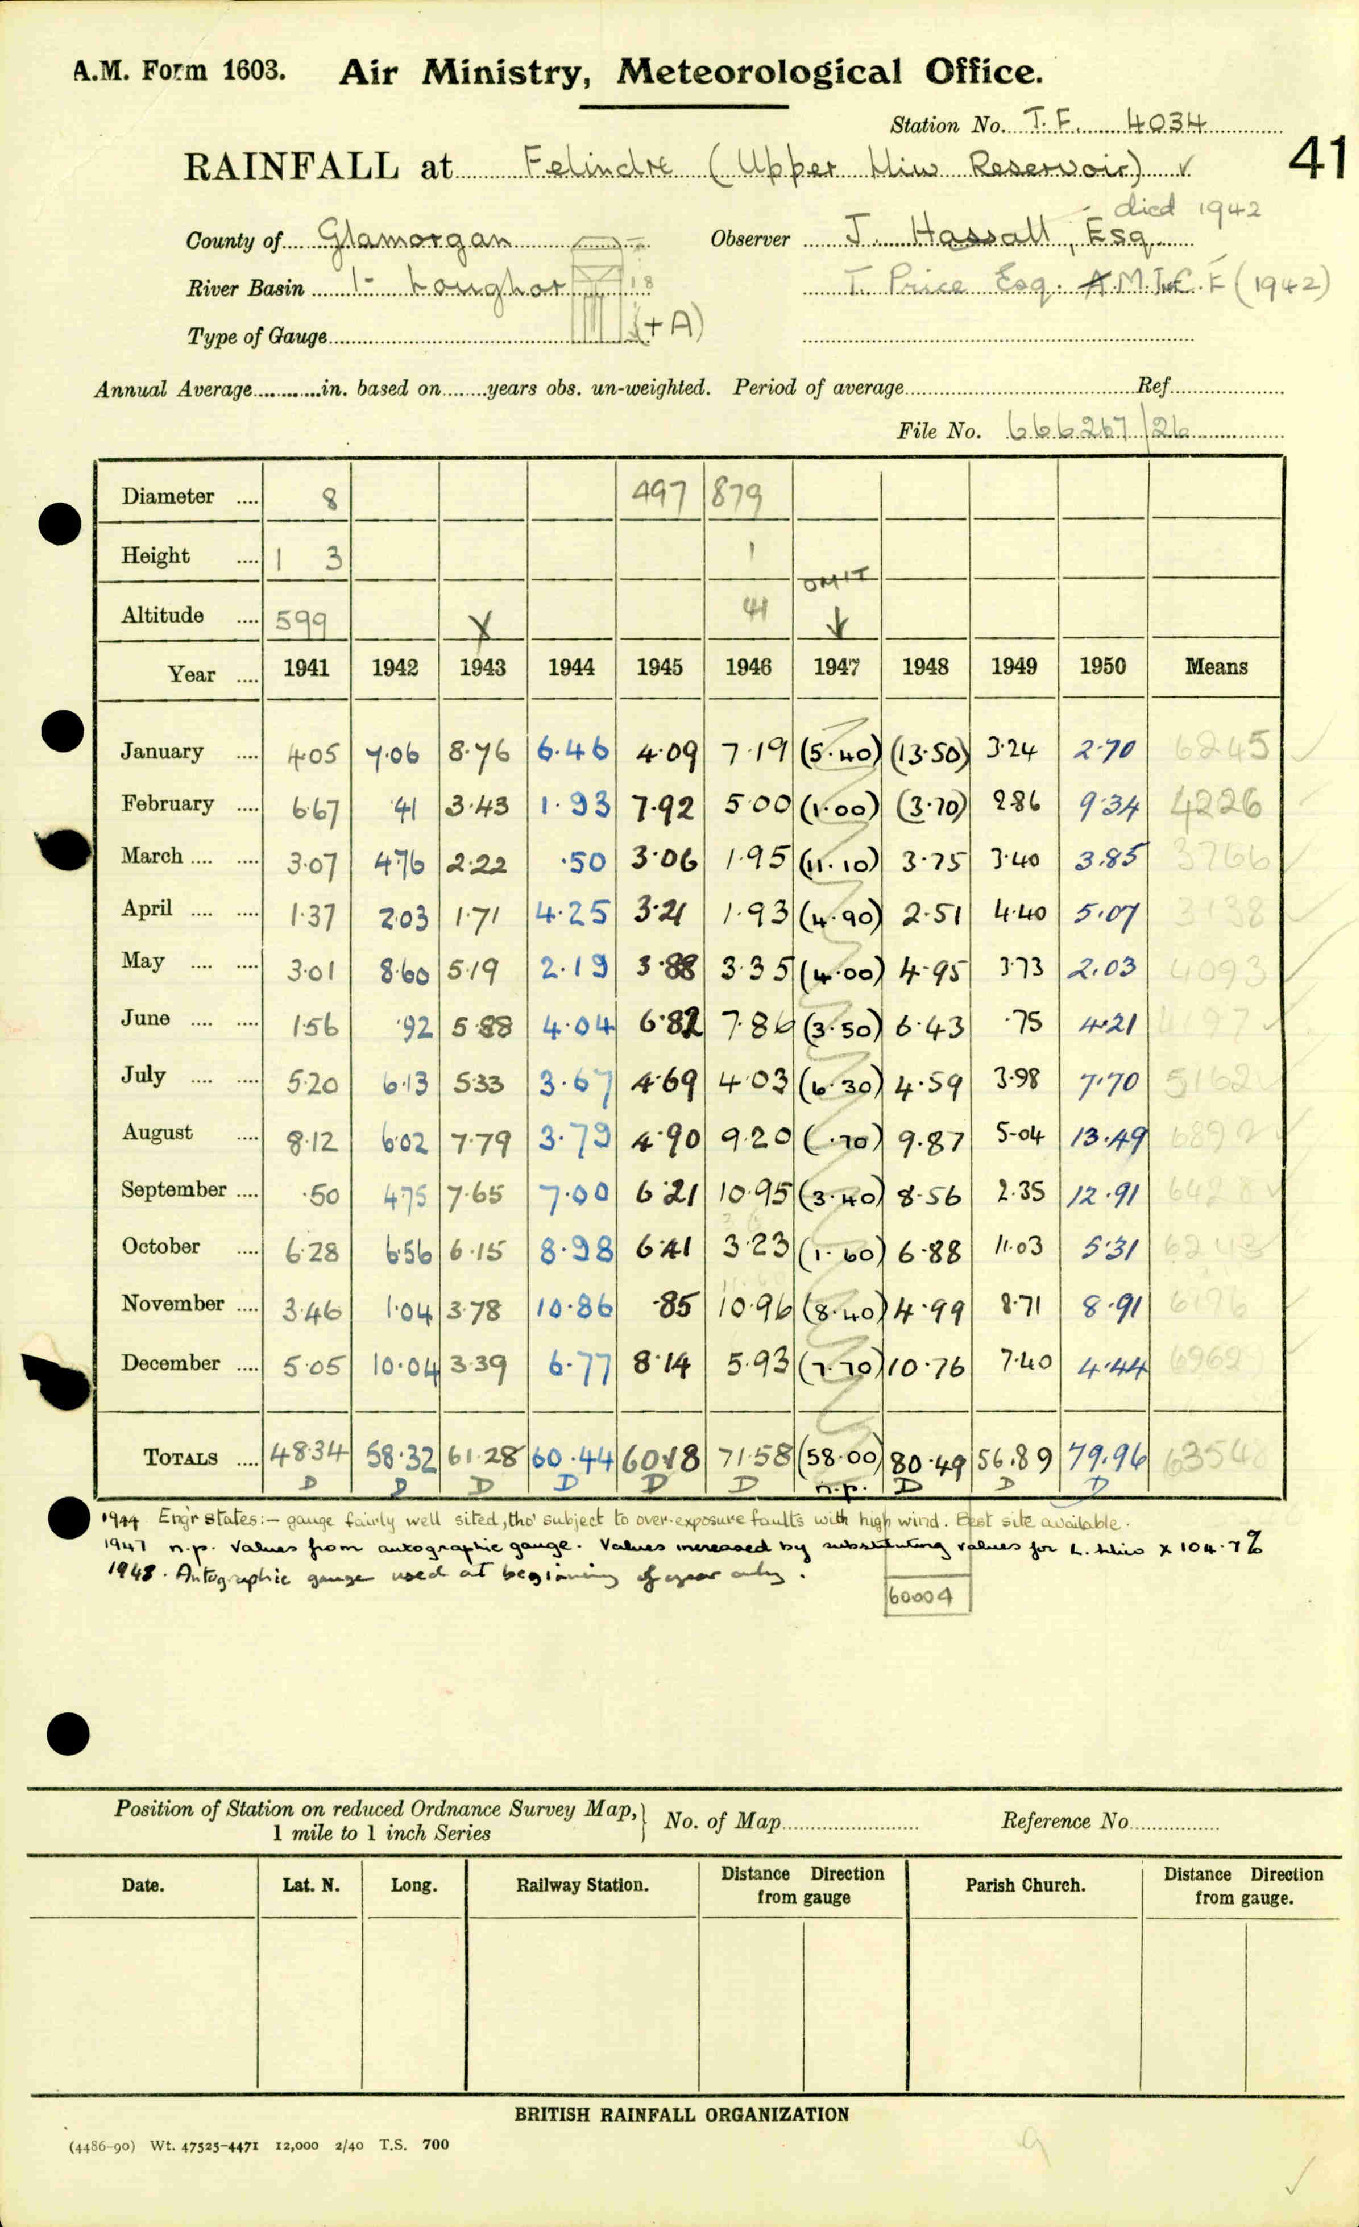 A.M. Form 1603. Air Ministry, Meteorological Office.
Station No. T.F. 4034
41
RAINFALL at Felindre (Upper Lliw Reservoir) ✓
died 1942
County of Glamorgan Observer J. Hassall, Esq
River Basin 1- Loughor 18 T. Price Esq. A.M.I.C.E (1942)
Type of Gauge (+A)
Annual Average in. based on years obs. un-weighted. Period of average Ref
File No. 666267/26
Diameter 8 497 879
Height 1 3 1
OMIT
Altitude 599 X 41 ↓
Year 1941 1942 1943 1944 1945 1946 1947 1948 1949 1950 Means
January 4.05 7.06 8.76 6.46 4.09 7.19 (5.40) (13.50) 3.24 2.70 6245 ✓
February 6.67 .41 3.43 1.93 7.92 5.00 (1.00) (3.70) 2.86 9.34 4226
March 3.07 4.76 2.22 .50 3.06 1.95 (11.10) 3.75 3.40 3.85 3766 ✓
April 1.37 2.03 1.71 4.25 3.21 1.93 (4.90) 2.51 4.40 5.07 3138 ✓
May 3.01 8.60 5.19 2.19 3.88 3.35 (4.00) 4.95 3.73 2.03 4093 ✓
June 1.56 .92 5.88 4.04 6.82 7.86 (3.50) 6.43 .75 4.21 ✓
July 5.20 6.13 5.33 3.67 4.69 4.03 (6.30) 4.59 3.98 7.70 5162 ✓
August 8.12 6.02 7.79 3.79 4.90 9.20 (.70) 9.87 5.04 13.49 ✓
September .50 4.75 7.65 7.00 6.21 10.95 (3.40) 8.56 2.35 12.91 ✓
October 6.28 6.56 6.15 8.98 6.41 3.23 (1.60) 6.88 11.03 5.31 6243
November 3.46 1.04 3.78 10.86 .85 10.96 (8.40) 4.99 8.71 8.91
December 5.05 10.04 3.39 6.77 8.14 5.93 (7.70) 10.76 7.40 4.44 6962
TOTALS 48.34 58.32 61.28 60.44 60.18 71.58 (58.00) 80.49 56.89 79.96 63548
D D D D D D n.p. D D D
1944 Engr States:- gauge fairly well sited, tho' subject to over-exposure faults with high wind. Best site available.
1947 n.p. Values from autographic gauge. Values increased by substituting values for L. Lliw x 104.7%
1948. Autographic gauge used at beginning of year only.
60004
Position of Station on reduced Ordnance Survey Map,
1 mile to 1 inch Series
No. of Map Reference No
Date. Lat. N. Long. Railway Station. Distance Direction from gauge Parish Church. Distance Direction from gauge.
BRITISH RAINFALL ORGANIZATION
(4486-90) Wt. 47525-4471 12,000 2/40 T.S. 700